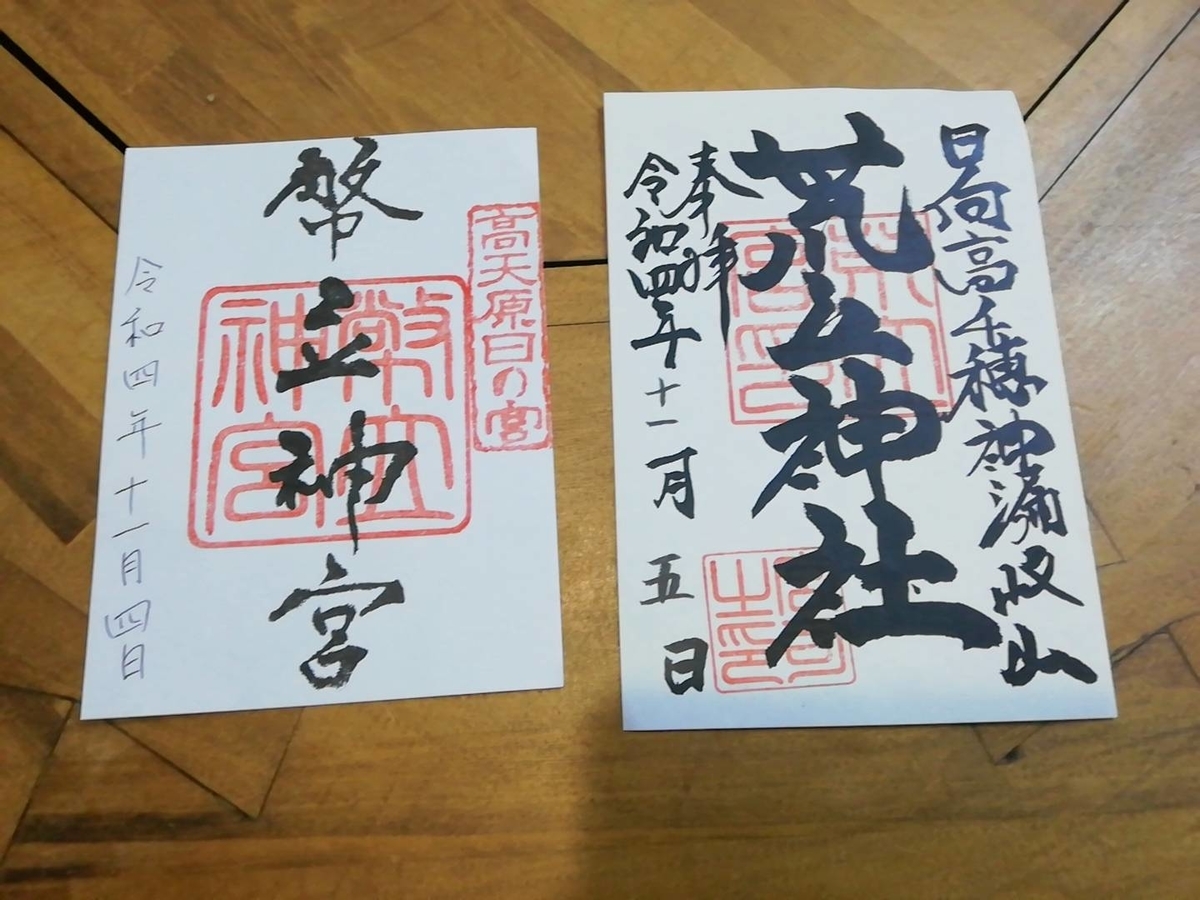 高天原日の宮
幣立神宮
幣立神宮
令和四年十一月四日
日向高千穂神漏岐山
荒立神社
宮司之印
奉拝
令和四年十一月五日